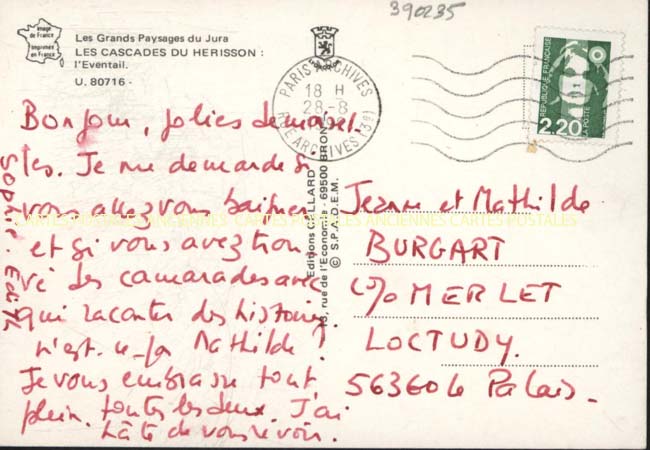 390235
Image
de France
Imprimée
en France
Les Grands Paysages du Jura
LES CASCADES DU HERISSON :
l'Eventail.
U. 80716 -
PARIS ARCHIVES
18 H
28-8
RUE ARCHIVES (3e)
RÉPUBLIQUE FRANÇAISE
LA POSTE
2,20
Bonjour, jolies demoisel-
les. Je me demande si
vous allez vous baigner
et si vous avez trou
vé des camarades avec
qui raconter des histoires,
n'est-ce pas Mathilde ?
Je vous embrasse tout
plein, toutes les deux. J'ai
hâte de vous revoir.
Sophie. Edith
Editions GAILLARD
13, rue de l'Economie - 69500 BRON
© S.P.A.D.E.M.
Jeanne et Mathilde
BURGART
c/o MERLET
LOCTUDY.
56360 le Palais.
CARTES POSTALES ANCIENNES CARTES POSTALES